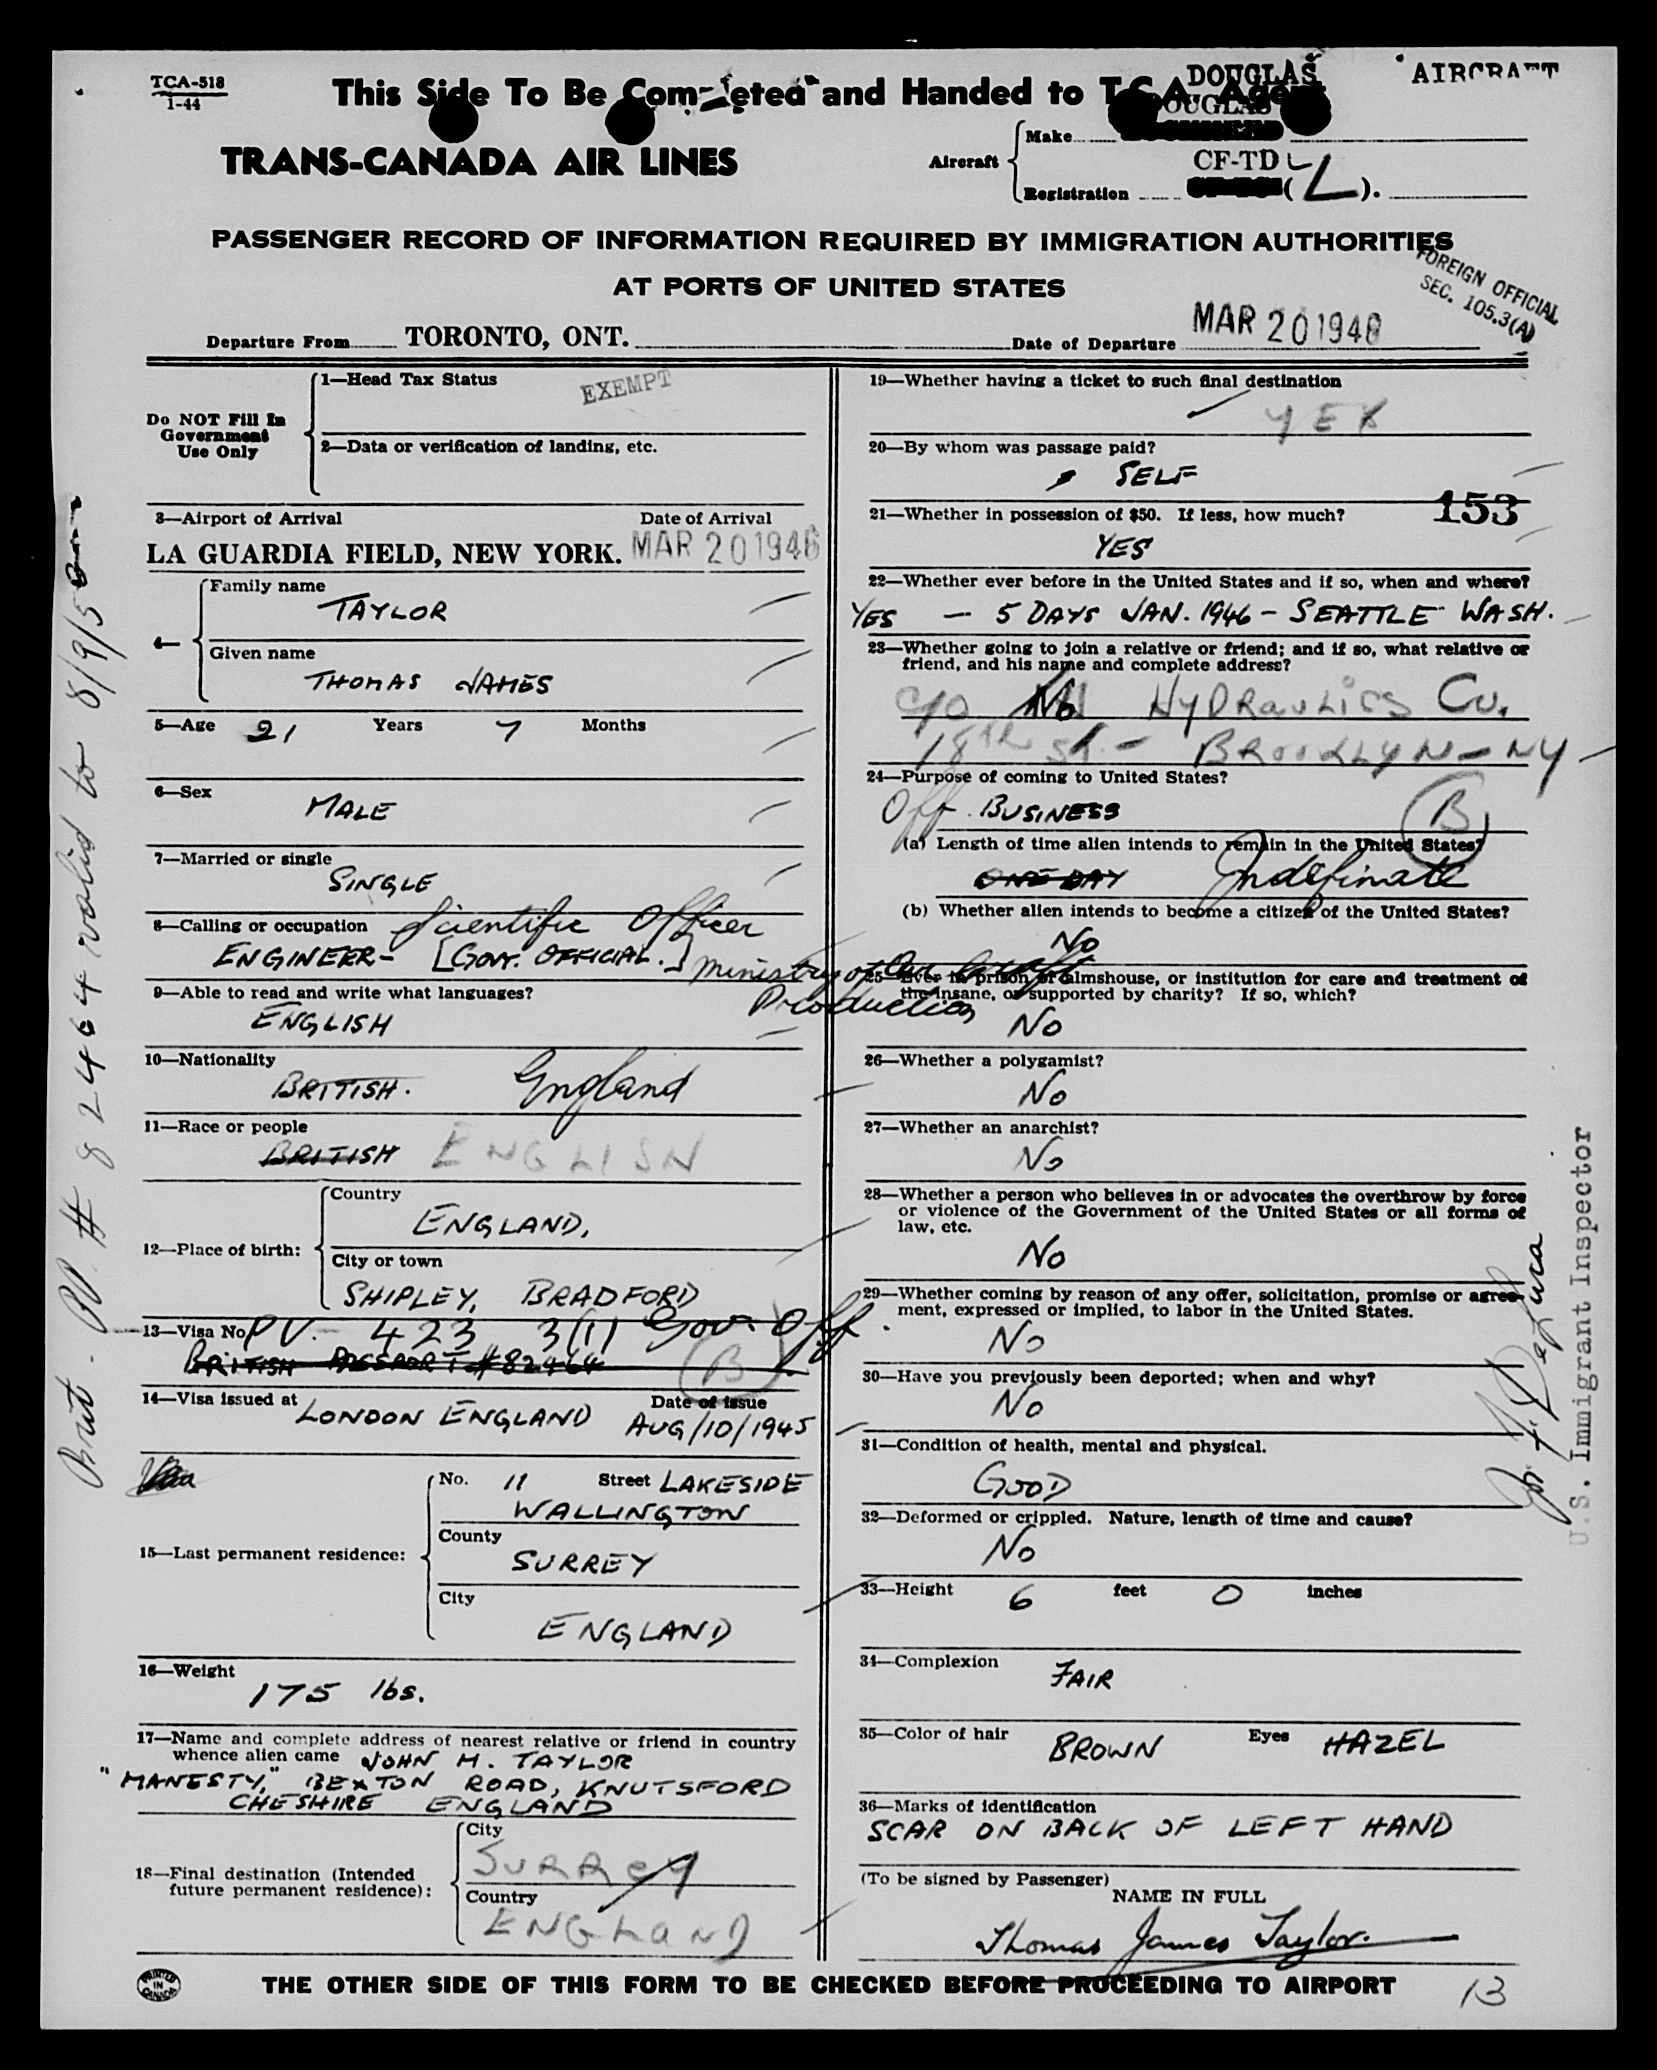 TCA-518
1-44
This Side To Be Completed and Handed to T.C.A. Agent
DOUGLAS
AIRCRAFT
DOUGLAS
TRANS-CANADA AIR LINES
Aircraft
Make
CF-TD L
Registration (L).
PASSENGER RECORD OF INFORMATION REQUIRED BY IMMIGRATION AUTHORITIES
AT PORTS OF UNITED STATES
FOREIGN OFFICIAL
SEC. 105.3(A)
Departure From TORONTO, ONT. Date of Departure MAR 20 1946
Do NOT Fill In
Government
Use Only
1—Head Tax Status EXEMPT
2—Data or verification of landing, etc.
3—Airport of Arrival Date of Arrival
LA GUARDIA FIELD, NEW YORK. MAR 20 1946
Family name
TAYLOR
Given name
THOMAS JAMES
5—Age 21 Years 7 Months
6—Sex
MALE
7—Married or single
SINGLE
8—Calling or occupation Scientific Officer
ENGINEER- [GOVT. OFFICIAL.] Ministry of Air Craft
Production
9—Able to read and write what languages?
ENGLISH
10—Nationality
BRITISH. England
11—Race or people
BRITISH ENGLISH
12—Place of birth:
Country
ENGLAND,
City or town
SHIPLEY, BRADFORD
13—Visa No PV. - 423 3(1) Gov. Off.
BRITISH PASSPORT #82464 B
14—Visa issued at LONDON ENGLAND Date of issue
AUG/10/1945
Visa
15—Last permanent residence:
No. 11 Street LAKESIDE
WALLINGTON
County
SURREY
City
ENGLAND
16—Weight
175 lbs.
17—Name and complete address of nearest relative or friend in country
whence alien came JOHN H. TAYLOR
"MANESTY," BEXTON ROAD, KNUTSFORD
CHESHIRE ENGLAND
18—Final destination (Intended
future permanent residence):
City
SURREY
Country
ENGLAND
19—Whether having a ticket to such final destination
YES
20—By whom was passage paid?
SELF
153
21—Whether in possession of $50. If less, how much?
YES
22—Whether ever before in the United States and if so, when and where?
YES — 5 DAYS JAN. 1946 - SEATTLE WASH.
23—Whether going to join a relative or friend; and if so, what relative or
friend, and his name and complete address?
c/o No HYDRAULICS Co.
18th St. - BROOKLYN - NY
24—Purpose of coming to United States?
Off. BUSINESS B
(a) Length of time alien intends to remain in the United States?
ONE DAY Indefinate
(b) Whether alien intends to become a citizen of the United States?
No
25—Ever in prison or almshouse, or institution for care and treatment of
the insane, or supported by charity? If so, which?
No
26—Whether a polygamist?
No
27—Whether an anarchist?
No
28—Whether a person who believes in or advocates the overthrow by force
or violence of the Government of the United States or all forms of
law, etc.
No
29—Whether coming by reason of any offer, solicitation, promise or agree-
ment, expressed or implied, to labor in the United States.
No
30—Have you previously been deported; when and why?
No
31—Condition of health, mental and physical.
GOOD
32—Deformed or crippled. Nature, length of time and cause?
No
33—Height 6 feet 0 inches
34—Complexion
FAIR
35—Color of hair BROWN Eyes HAZEL
36—Marks of identification
SCAR ON BACK OF LEFT HAND
(To be signed by Passenger)
NAME IN FULL
Thomas James Taylor.
Brit. PP. # 82464 valid to 8/9/50
U.S. Immigrant Inspector
PRINTED IN CANADA
THE OTHER SIDE OF THIS FORM TO BE CHECKED BEFORE PROCEEDING TO AIRPORT
13